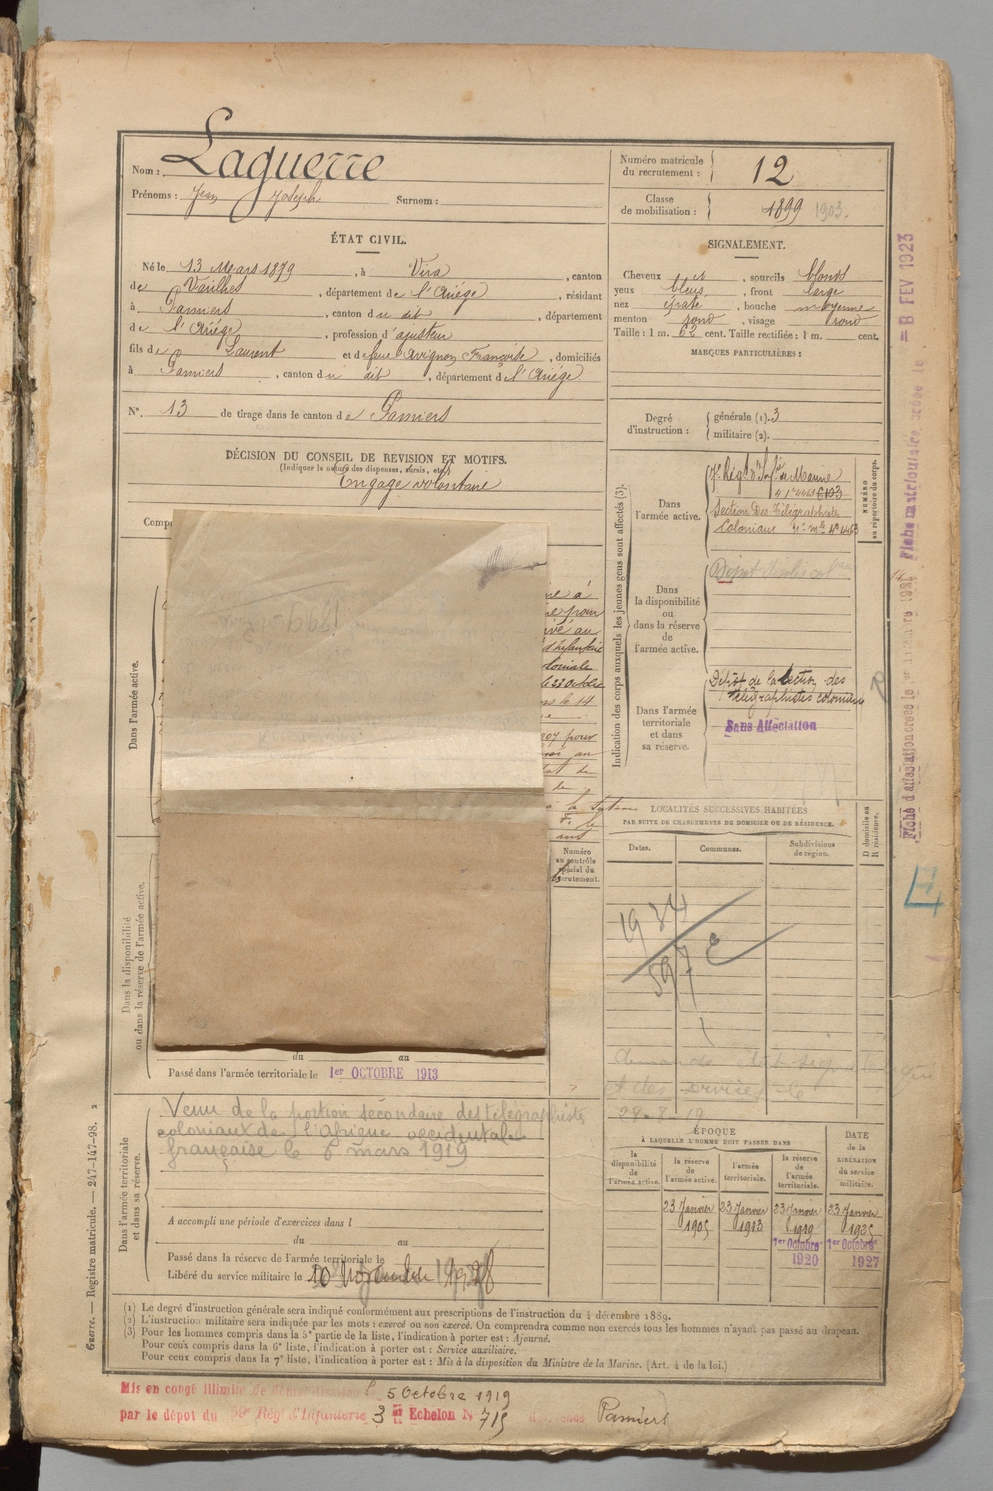 Nom : Laguerre
Prénoms : Jean Joseph Surnom :
ÉTAT CIVIL.
Né le 13 Mars 1879, à Vira, canton
de Varilhes, département de l'Ariége, résidant
à Pamiers, canton du dit, département
de l'Ariége, profession d'ajusteur
fils de Laurent et de feue Avignon Françoise, domiciliés
à Pamiers, canton du dit, département de l'Ariége
N°. 13 de tirage dans le canton de Pamiers
DÉCISION DU CONSEIL DE REVISION ET MOTIFS.
(Indiquer la nature des dispenses, sursis, etc.)
Engagé volontaire
Comp
Dans l'armée active.
à
pour
au
d'Infanterie
coloniale
le 23 Octobre
le 14
pour
au
de
de
à la
le
ans
Numéro
au contrôle
spécial du
recrutement.
Dans la disponibilité
ou dans la réserve de l'armée active.
du au
Passé dans l'armée territoriale le 1er OCTOBRE 1913
Dans l'armée territoriale
et dans sa réserve.
Venu de la portion secondaire des télégraphistes
coloniaux de l'Afrique occidentale
française le 6 mars 1919
A accompli une période d'exercices dans l
du au
Passé dans la réserve de l'armée territoriale le
Libéré du service militaire le 10 Novembre
Numéro matricule
du recrutement : 12
Classe
de mobilisation : 1899 1903.
SIGNALEMENT.
Cheveux et, sourcils blonds
yeux bleus, front large
nez épaté, bouche moyenne
menton rond, visage rond
Taille : 1 m. 62 cent. Taille rectifiée : 1 m. cent.
MARQUES PARTICULIÈRES :
Degré
d'instruction :
générale (1). 3
militaire (2).
Indication des corps auxquels les jeunes gens sont affectés (3).
Dans
l'armée active.
7e Régt d'Infie de Marine
Section Des Télégraphistes
Coloniaux
NUMÉRO
au répertoire du corps.
Dans
la disponibilité
ou
dans la réserve
de
l'armée active.
Dépôt
Dans l'armée
territoriale
et dans
sa réserve.
Dépôt de la Section des
télégraphistes coloniaux
Sans Affectation
LOCALITÉS SUCCESSIVES HABITÉES
PAR SUITE DE CHANGEMENTS DE DOMICILE OU DE RÉSIDENCE.
Dates.
Communes.
Subdivisions
de région.
D domicile ou
R résidence.
1934
597
28-8 19
ÉPOQUE
À LAQUELLE L'HOMME DOIT PASSER DANS
DATE
de la
LIBÉRATION
du service
militaire.
la
disponibilité
de
l'armée active.
la réserve
de
l'armée active.
l'armée
territoriale.
la réserve
de
l'armée
territoriale.
23 Janvier
1905
23 Janvier
1913
23 Janvier
1919
1er Octobre
1920
23 Janvier
1925
1er Octobre
1927
(1) Le degré d'instruction générale sera indiqué conformément aux prescriptions de l'instruction du 4 décembre 1889.
(2) L'instruction militaire sera indiquée par les mots : exercé ou non exercé. On comprendra comme non exercés tous les hommes n'ayant pas passé au drapeau.
(3) Pour les hommes compris dans la 5e partie de la liste, l'indication à porter est : Ajourné.
Pour ceux compris dans la 6e liste, l'indication à porter est : Service auxiliaire.
Pour ceux compris dans la 7e liste, l'indication à porter est : Mis à la disposition du Ministre de la Marine. (Art. 4 de la loi.)
Mis en congé illimité de démobilisation le 5 Octobre 1919
par le dépot du Rég' d'Infanterie 3 Echelon N 715 Pamiers
Guerre. — Registre matricule. — 247-147-98. 2
Fiche matriculaire créée le = 8 FEV 1923